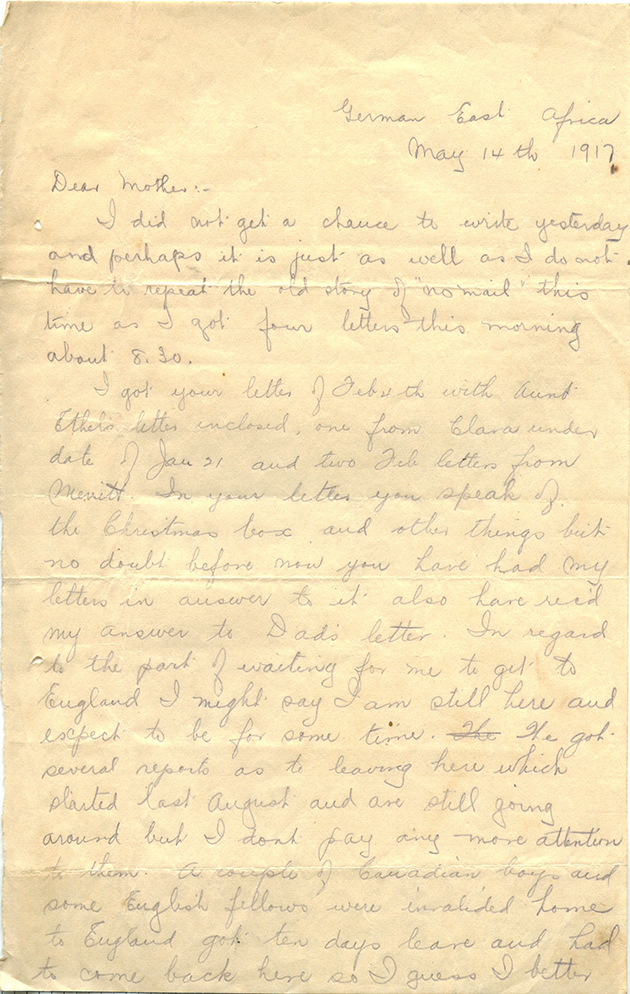 German East Africa
May 14th 1917
Dear Mother:-
I did not get a chance to write yesterday
and perhaps it is just as well as I do not
have to repeat the old story of "no mail" this
time as I got four letters this morning
about 8.30.
I got your letter of Feb 4th with Aunt
Ethel's letter inclosed, one from Clara under
date of Jan 21 and two Feb letters from
Merritt. In your letter you speak of
the Christmas box and other things but
no doubt before now you have had my
letters in answer to it also have rec'd
my answer to Dad's letter. In regard
to the part of waiting for me to get to
England I might say I am still here and
expect to be for some time. The got
several reports as to leaving here which
started last August and are still going
around but I dont pay any more attention
to them. A couple of Canadian boys and
some English fellows were invalided home
to England got ten days leave and had
to come back here so I guess I better